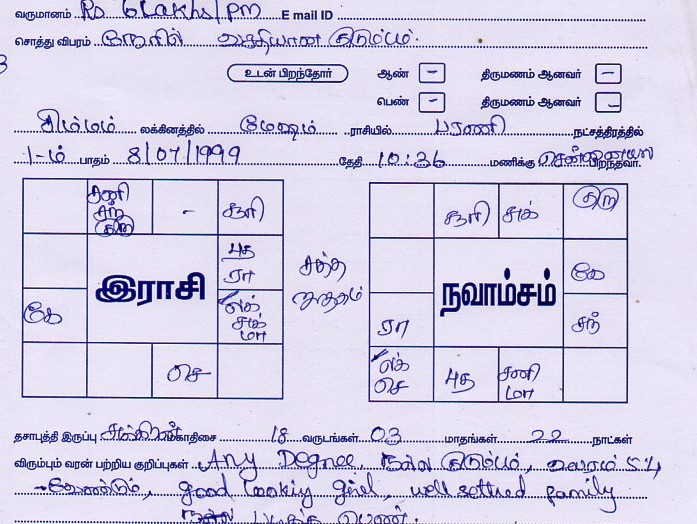 வருமானம் Rs 6 Lakhs/pm E mail ID
சொத்து விபரம் நேரில் வசதியான குடும்பம்.
3
உடன் பிறந்தோர் ஆண் - திருமணம் ஆனவர் -
பெண் - திருமணம் ஆனவர் -
சிம்மம் லக்கினத்தில் மேஷம் ராசியில் பரணி நட்சத்திரத்தில்
1-ம் பாதம் 8/07/1999 தேதி 10:36 மணிக்கு சென்னையில் பிறந்தவர்.
சனி - சூரி
சந்
குரு
புத
ரா
இராசி
கே
லக்
சுக்
மா
செ
சுத்த
ஜாதகம்
சூரி சுக் குரு
கே
நவாம்சம்
ரா சந்
லக் புத சனி
செ மா
தசாபுத்தி இருப்பு சுக்கிரன் மகாதிசை 18 வருடங்கள் 03 மாதங்கள் 22 நாட்கள்
விரும்பும் வரன் பற்றிய குறிப்புகள் Any Degree, நல்ல குடும்பம், உயரம் 5.4
வேண்டும், good looking girl, well settled family
நல்ல படித்த பெண்.